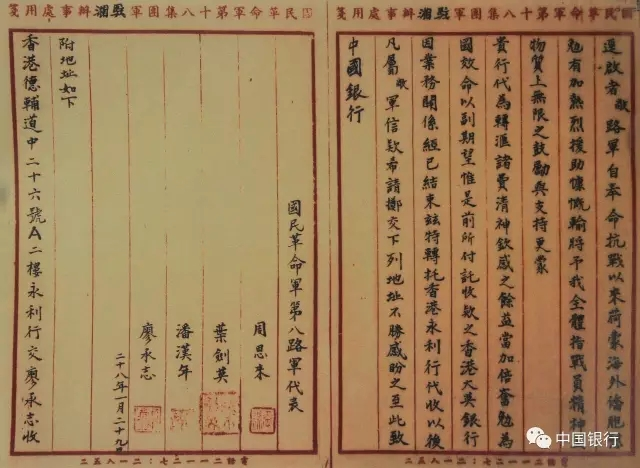 國民革命軍第十八集團軍駐湘辦事處用箋
逕啟者敝路軍自奉命抗戰以來荷蒙海外僑胞
勉有加熱烈援助慷慨輸將予我全體指戰員精神
物質上無限之鼓勵與支持更蒙
貴行代為轉滙諸費清神欽感之餘益當加倍奮勉為
國效命以副期望惟是前所付託收款之香港大英銀行
因業務關係經已結束玆特轉托香港永利行代收以後
凡屬敝軍信欵希請擲交下列地址不勝感盼之至此致
中國銀行
電話二一一二七:二一八五二
民革命軍第十八集團軍駐湘辦事處用箋
國民革命軍第八路軍代表
周恩來
葉劍英
潘漢年
廖承志
二十八年一月二十九日
附地址如下
香港德輔道中二十六號A二樓永利行交廖承志收
電話二一一二七:二一八五二
中国银行